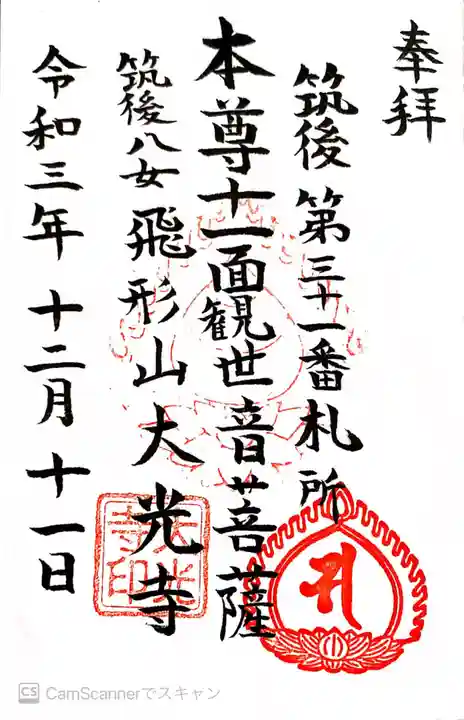 奉拝
筑後第三十一番札所
本尊十一面観世音菩薩
筑後八女飛形山大光寺
令和三年十二月十一日
大光寺印
CS CamScannerでスキャン